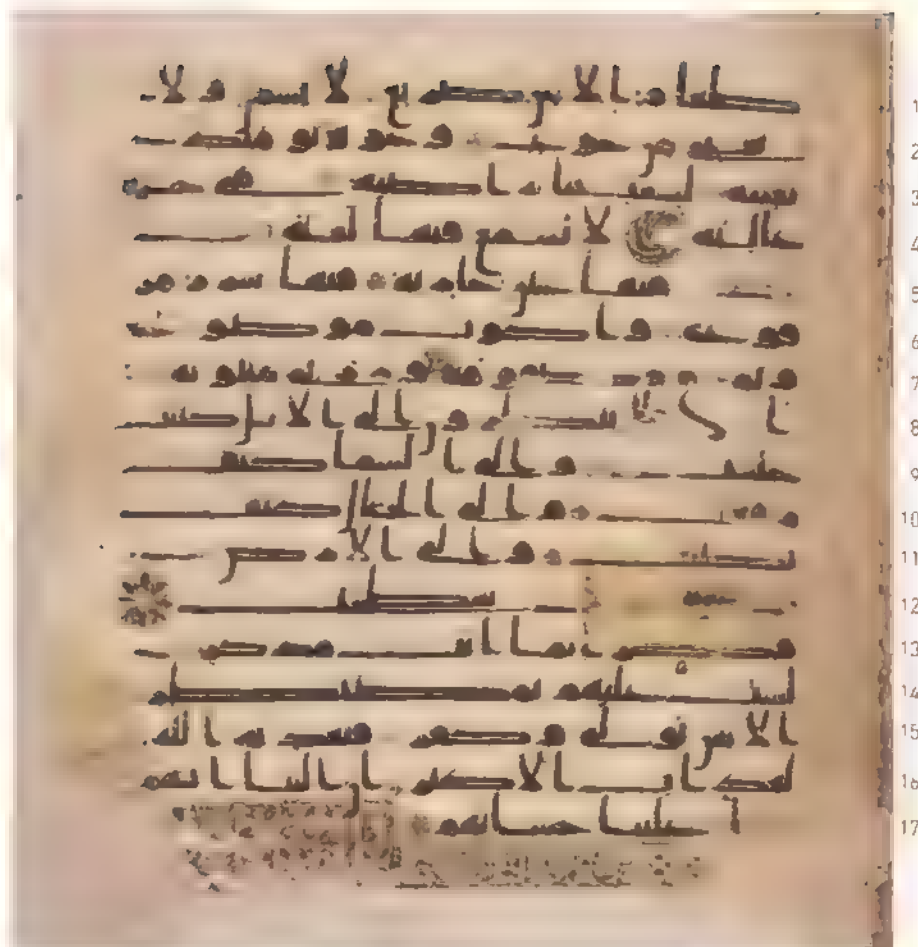 طعام الا من ضريع لا يسمن و لا 1
يغنى من جوع وجوه يومئذ 2
ناعمة لسعيها راضية فى جنة 3
عالية لا تسمع فيها لغية 4
فيها عين جارية فيها سرر مر 5
فوعة واكواب موضوعة 6
ونمارق مصفوفة وزرابى مبثو 7
ثة افلا ينظرون الى الابل كيف 8
خلقت والى السما كيف 9
رفعت والى الجبال كيف 10
نصبت والى الارض كيف 11
سطحت 12
فذكر انما انت مذكر 13
لست عليهم بمصيطر 14
الا من تولى وكفر فيعذبه الله 15
العذاب الاكبر ان الينا ايابهم 16
ثم ان علينا حسابهم 17